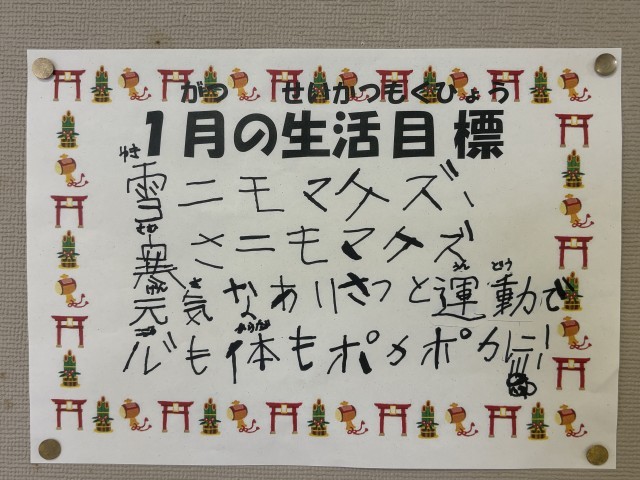 がつ せいかつもくひょう
1月の生活目標
ゆき
雪ニモマケズ、
寒さニモマケズ
げん き うん どう
元気なあいさつと運動で
からだ
心も体もポカポカに!!